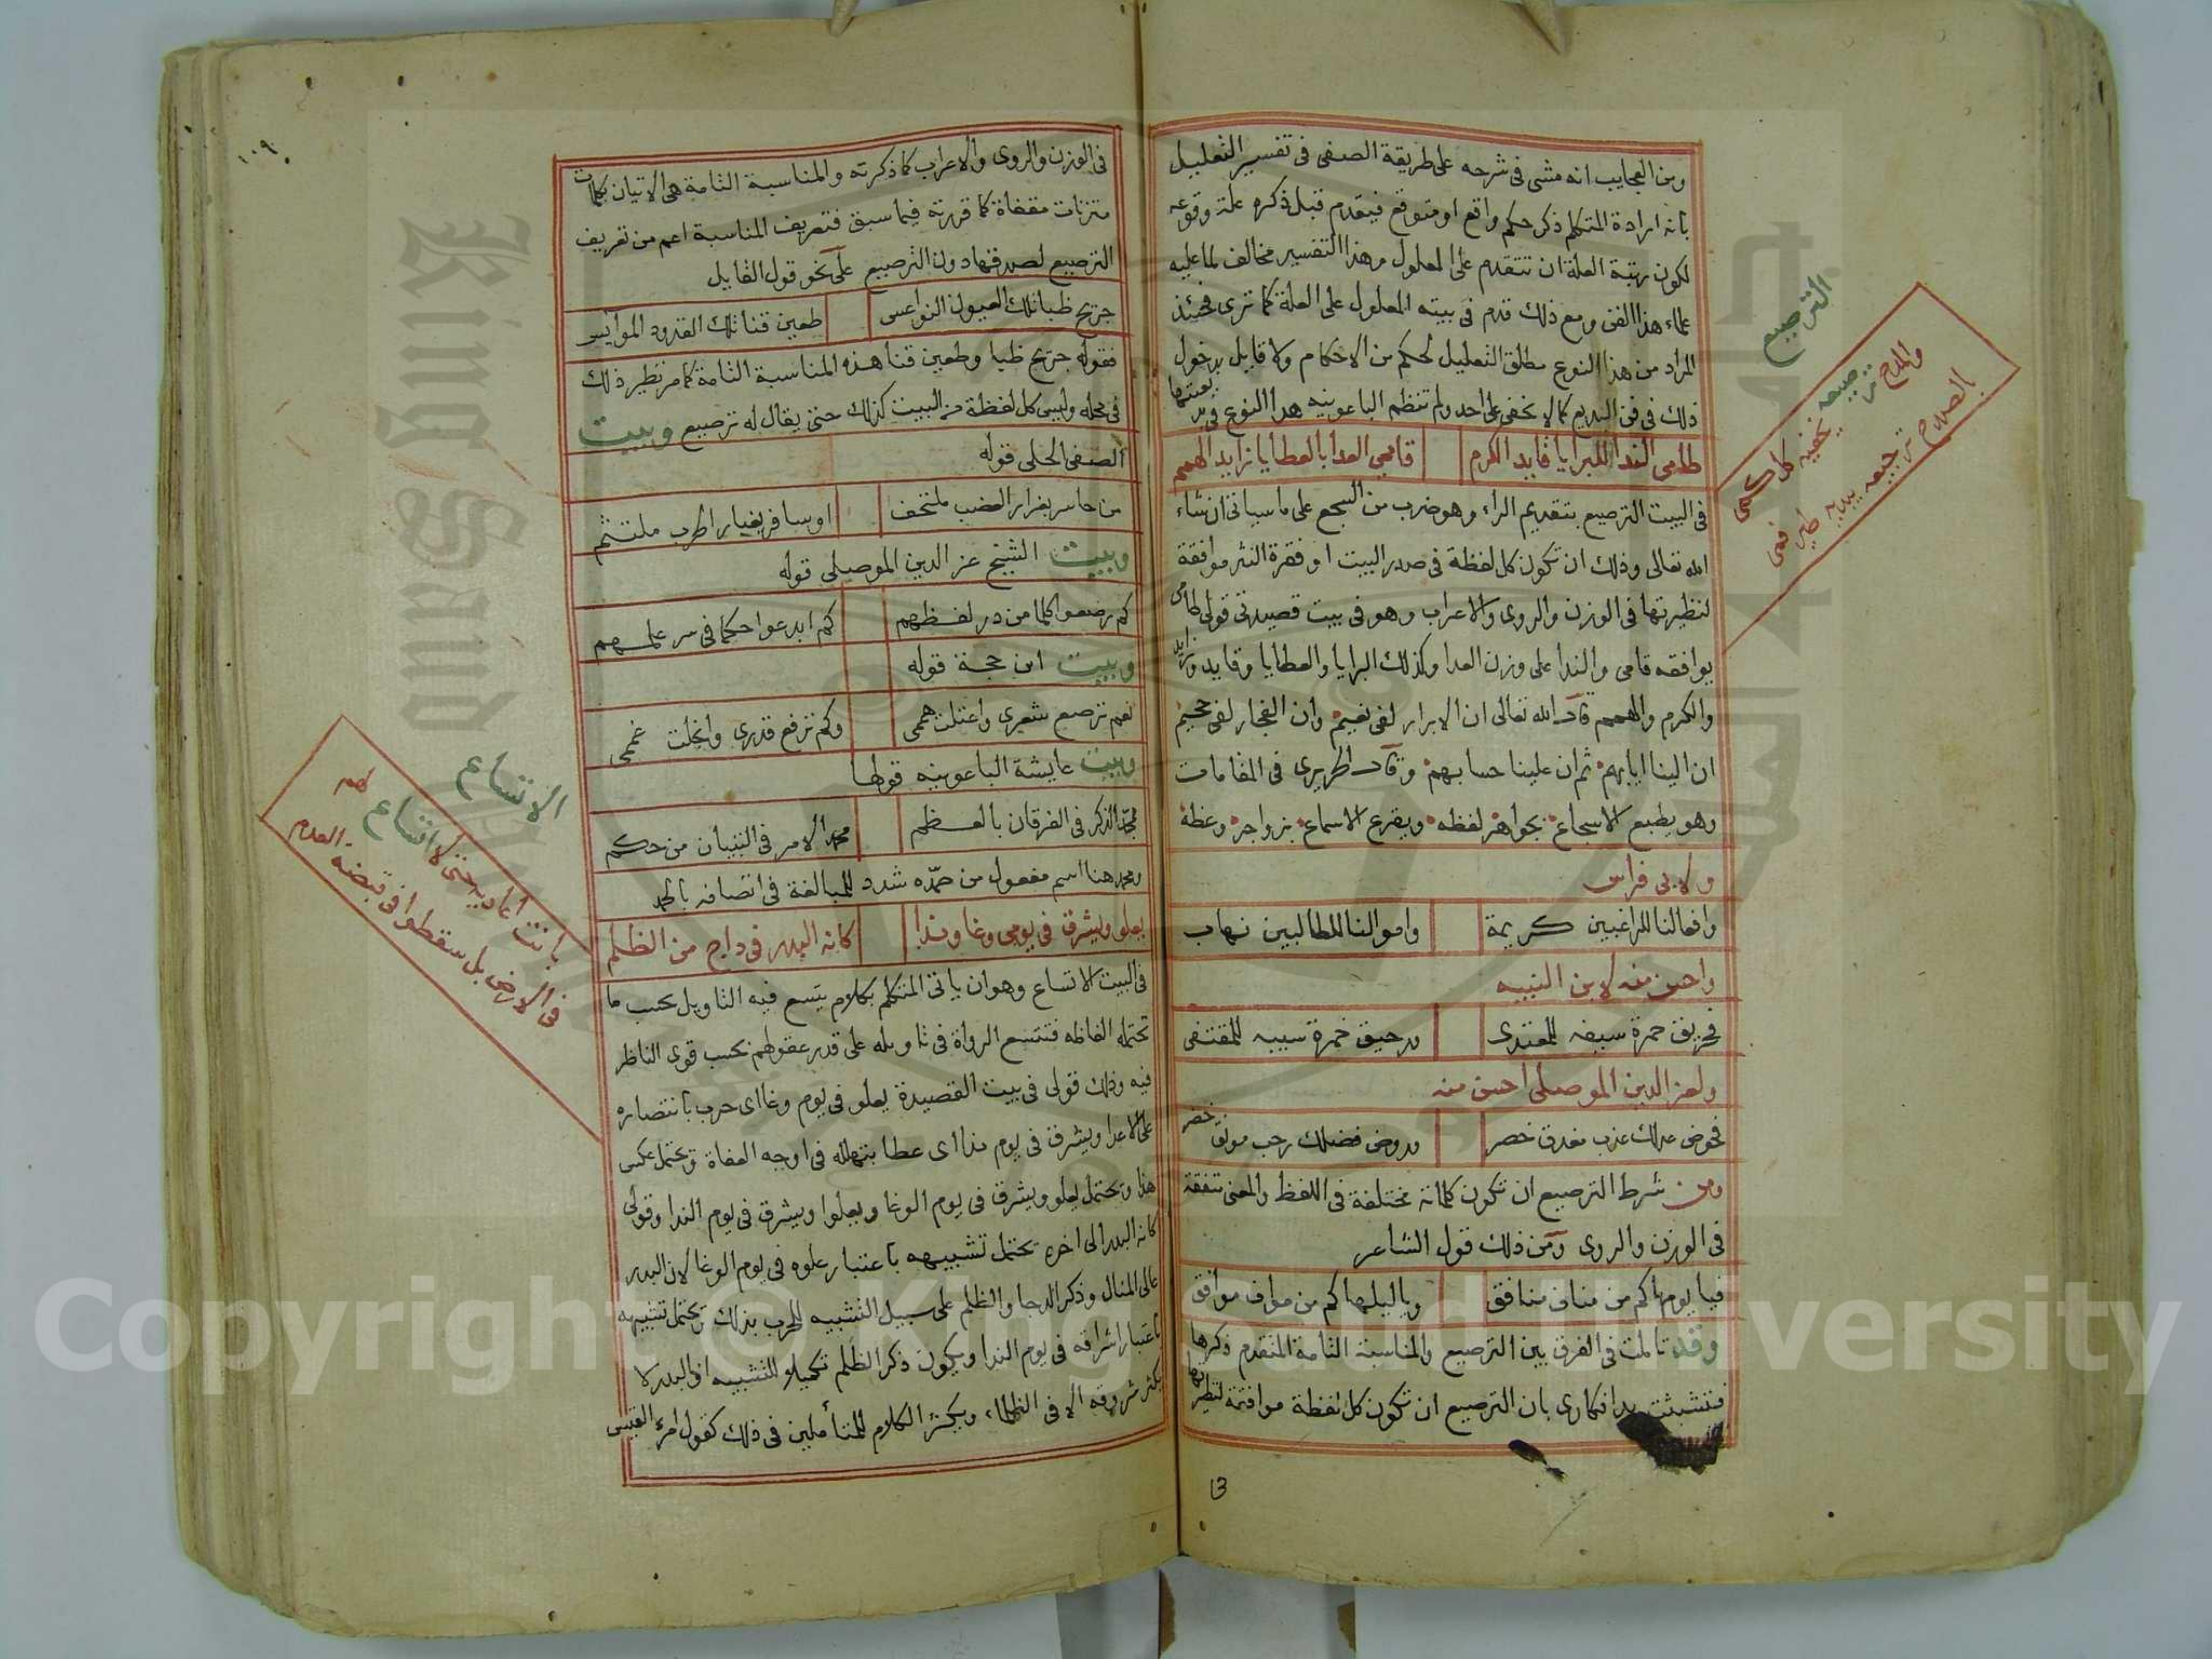 ومن العجايب انه مشى فى شرحه على طريقة الصفى فى تفسير التعليل
بانه ارادة المتكلم ذكر حكم واقع او متوقع فيقدم قبل ذكره علة وقوعه
لكون رتبة العلة ان تتقدم على المعلول وهذا التفسير مخالف لما عليه
علماء هذا الفن ومع ذلك قدم فى بيته المعلول على العلة كما ترى فحينئذ
المراد من هذا النوع مطلق التعليل لحكم من الاحكام ولا قايل بدخول
ذلك فى فن البديع كما لا يخفى على احد ولم تنظم الباعونيه هذا النوع فى بديعيتها
طامى الندا للبرايا قايد الكرم قامى العدا بالعطايا زايد الهمم
فى البيت الترصيع بتقديم الراء وهو ضرب من السجع على ما سياتى ان شاء
الله تعالى وذلك ان تكون كل لفظة فى صدر البيت او فقرة النثر موافقة
لنظيرتها فى الوزن والروى والاعراب وهو فى بيت قصيدتى قولى طامى
يوافقه قامى والندا على وزن العدا وكذلك البرايا والعطايا وقايد وزايد
والكرم والهمم قال الله تعالى ان الابرار لفى نعيم وان الفجار لفى جحيم
ان الينا ايابهم ثم ان علينا حسابهم وقال الحريرى فى المقامات
وهو يطبع الاسجاع بجواهر لفظه ويقرع الاسماع بزواجر وعظه
ولابى فراس
وافعالنا للراغبين كريمة واموالنا للطالبين نهاب
واحسن منه لابن النبيه
فحريق جمرة سيفه للمعتدى ورحيق خمرة سيبه للمقتفى
ولعز الدين الموصلى احسن منه
فحوض عدلك عذب مغدق خصر وروض فضلك رحب مونق خضر
ومن شرط الترصيع ان تكون كلماته مختلفة فى اللفظ والمعنى متفقة
فى الوزن والروى ومن ذلك قول الشاعر
فيا يومها كم من مناف منافق ويا ليلها كم من مواف موافق
وقد تاملت فى الفرق بين الترصيع والمناسبة التامة المتقدم ذكرها
فتشبثت يد افكارى بان الترصيع ان تكون كل لفظة موافقة لنظيرتها
الترصيع
والمدح ترصيعه يخفيه كل كمى
الصلاح ترجيعه يبديه طير فمى
١٠٩
فى الوزن والروى والاعراب كما ذكرته والمناسبة التامة هى الاتيان بكلمات
متزنات مقفاة كما قررته فيما سبق فتعريف المناسبة اعم من تعريف
الترصيع لصدقها دون الترصيع على نحو قول القايل
جريح ظباتك العيون النواعس طعين قناتك القدود الموايس
فقوله جريح ظبا وطعين قنا هذه المناسبة التامة كما مر نظير ذلك
فى محله وليس كل لفظة من البيت كذلك حتى يقال له ترصيع وبيت
الصفى الحلى قوله
من حاسر بغرار العضب ملتحف او سافر بغبار الحرب ملتثم
وبيت الشيخ عز الدين الموصلى قوله
كم رصعوا كلما من در لفظهم كم ابدعوا حكما فى سر علمهم
وبيت ابن حجة قوله
نعم ترصع شعرى واعتلت هممى وكم ترفع قدرى وانجلت غممى
وبيت عايشة الباعونيه قولها
ممجد الذكر فى الفرقان بالعظم محمد الامر فى التبيان من حكم
ومحمد هنا اسم مفعول من حمده شدد للمبالغة فى اتصافه بالحمد
يعلو ويشرق فى يومى وغا وندا كانه البدر فى داج من الظلم
فى البيت الاتساع وهو ان ياتى المتكلم بكلام يتسع فيه التاويل بحسب ما
تحتمله الفاظه فتتسع الرواة فى تاويله على قدر عقولهم بحسب قوى الناظر
فيه وذلك قولى فى بيت القصيدة يعلو فى يوم وغا اى حرب بانتصاره
على الاعدا ويشرق فى يوم ندا اى عطا بتهلله فى اوجه العفاة ويحتمل عكس
هذا ويحتمل يعلو ويشرق فى يوم الوغا ويعلوا ويشرق فى يوم الندا وقولى
كانه البدر الى اخره يحتمل تشبيهه باعتبار علوه فى يوم الوغا لان البدر
عالى المنال وذكر الدجا والظلم على سبيل التشبيه للحرب بذلك ويحتمل تشبيهه
باعتبار اشراقه فى يوم الندا ويكون ذكر الظلم تكميلا للتشبيه اذ البدر لا
يكثر شروقه الا فى الظلماء ويكثر الكلام للمتأملين فى ذلك كقول امرء القيس
الاتساع
بانت اعاديه حتى لا اتساع لهم
فى الارض بل سقطوا فى قبضة العدم
King Saud University
Copyright © King Saud University